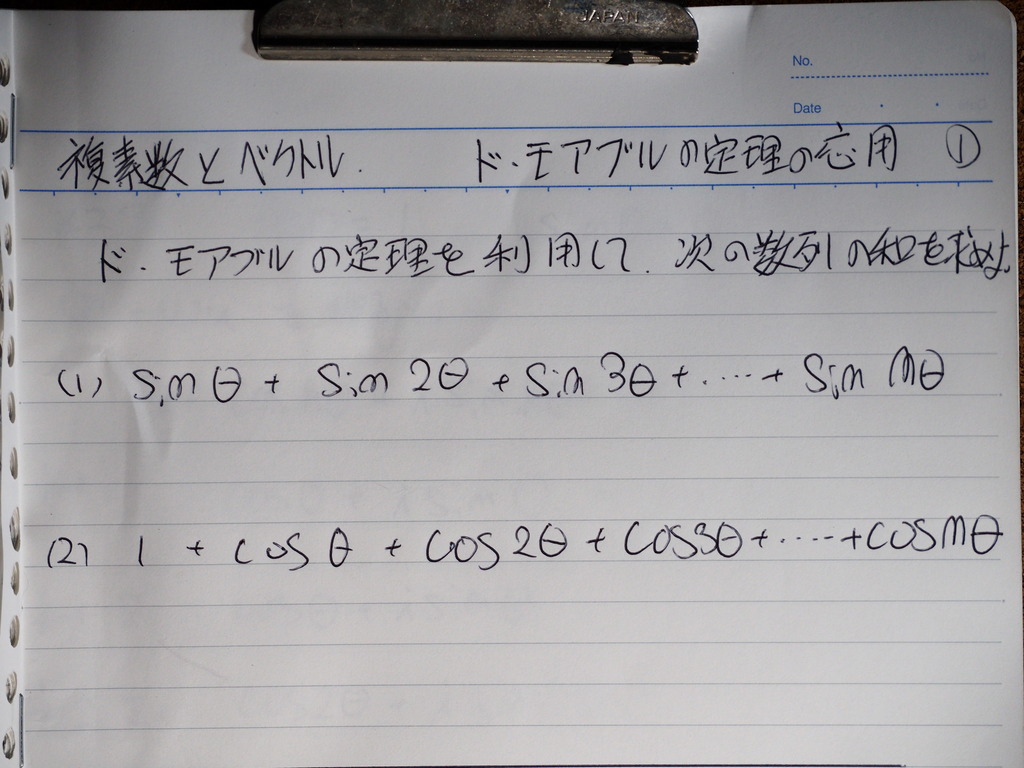 JAPAN
No.
Date
複素数とベクトル. ド・モアブルの定理の応用 ①
ド・モアブルの定理を利用して. 次の数列の和を求めよ.
(1) sin θ + sin 2θ + sin 3θ + ..... + sin nθ
(2) 1 + cos θ + cos 2θ + cos3θ + ..... + cos nθ